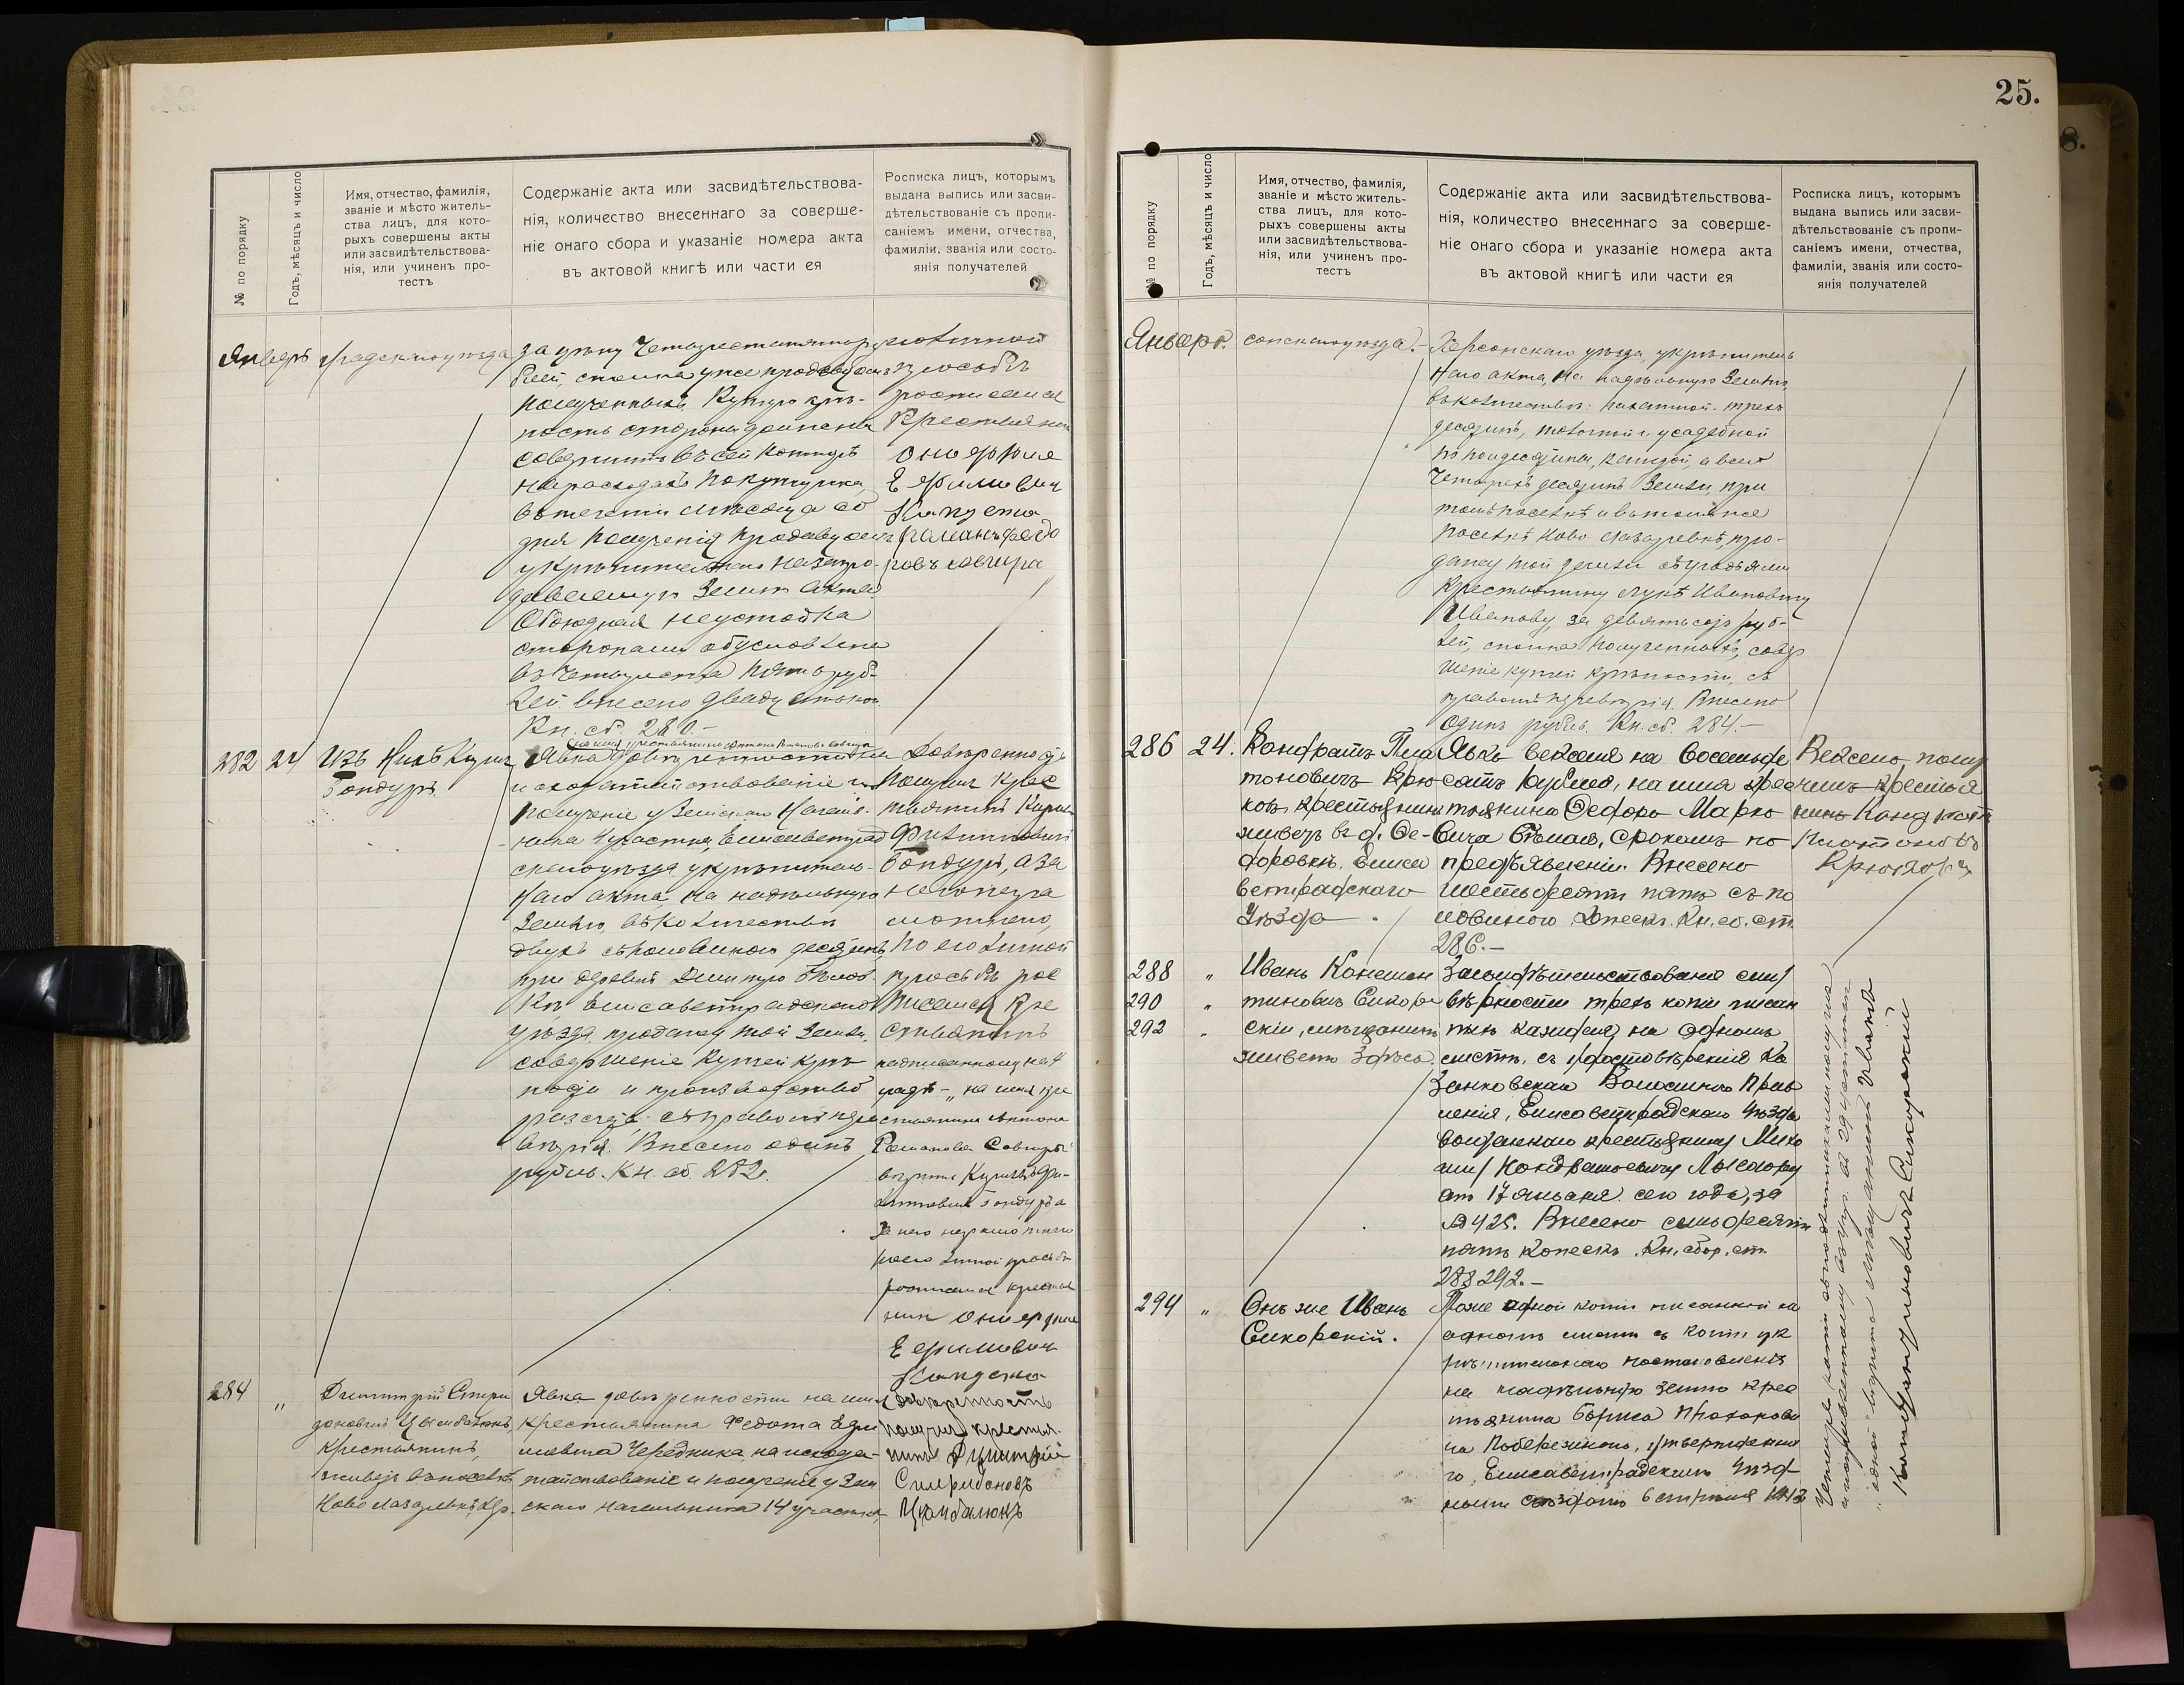 25.
8.
№ по порядку
Годъ, мѣсяцъ и число
Имя, отчество, фамилія,
званіе и мѣсто житель-
ства лицъ, для кото-
рыхъ совершены акты
или засвидѣтельствова-
нія, или учиненъ про-
тестъ
Содержаніе акта или засвидѣтельствова-
нія, количество внесеннаго за соверше-
ніе онаго сбора и указаніе номера акта
въ актовой книгѣ или части ея
Росписка лицъ, которымъ
выдана выпись или засви-
дѣтельствованіе съ пропи-
саніемъ имени, отчества,
фамиліи, званія или состо-
янія получателей
Январь
градскаго уѣзда
за цѣну четыреста пять ру-
блей, сполна уже продавцомъ
полученныхъ. Купчую крѣ-
пость стороны должны
совершить въ сей конторѣ
на расходахъ покупщика,
въ теченіи мѣсяца со
дня полученія продавцомъ
укрѣпительнаго на запро-
даваемую землю акта.
Обоюдная неустойка
сторонами обусловлена
въ четыреста пять руб-
лей. Внесено двадцать коп.
Кн. сб. 280.-
личной
просьбѣ
росписался
Крестьянинъ
Онуфрие
Ефимович
282
24
Гондуръ
Явка довѣренности на
и ходатайствованіе и
полученіе у Земскаго Началь-
ника 4 участка, Елисаветград
скаго уѣзда укрѣпитель-
наго акта на надѣльную
землю, въ количествѣ
двухъ съ половиною десятинъ
при деревнѣ
кѣ Елисаветградскаго
уѣзда, продажу той земли,
совершеніе купчей крѣ-
пости и производство
разсчета съ правомъ пере-
вѣрія. Внесено одинъ
рубль. Кн. сб. 282.
Довѣренность
получилъ Крес
тьянинъ
Филипповичъ
Гондуръ, а за
неграмотнаго,
по его личной
просьбѣ рос
писался Кре
стьянинъ
надписанному на
на имя кре
стьянина Антона
Романова
Гондуръ а
за него неграмотнаго
по его личной просьбѣ
росписался крестья
нин Онуфрие
Ефимович
284
"
Димитрій Спири
доновичъ Цымбалюкъ,
Крестьянинъ,
живетъ въ поселкѣ
Ново Лазаревкѣ, Хер-
Явка довѣренности на имя
крестьянина Федота Ефи
мовича Чередника, на хода-
тайствованіе и полученіе у Зем
скаго Начальника 14 участка,
Довѣренность
получилъ крестья-
нинъ Димитрій
Спиридоновъ
Цымбалюкъ
№ по порядку
Годъ, мѣсяцъ и число
Имя, отчество, фамилія,
званіе и мѣсто житель-
ства лицъ, для кото-
рыхъ совершены акты
или засвидѣтельствова-
нія, или учиненъ про-
тестъ
Содержаніе акта или засвидѣтельствова-
нія, количество внесеннаго за соверше-
ніе онаго сбора и указаніе номера акта
въ актовой книгѣ или части ея
Росписка лицъ, которымъ
выдана выпись или засви-
дѣтельствованіе съ пропи-
саніемъ имени, отчества,
фамиліи, званія или состо-
янія получателей
Январь.
сонскаго уѣзда.-
Херсонскаго уѣзда, укрѣпитель
наго акта, на надѣльную землю,
въ количествѣ: пахатной трехъ
десятинъ, толочной и усадебной
по полдесятины, каждой, а всего
четырехъ десятинъ земли, при
томъ поселкѣ и въ томъ же
поселкѣ Ново Лазаревкѣ, про-
дажу той земли съ угодьями
Крестьянину Лукѣ Ивановичу
Иванову, за девятьсотъ руб-
лей, сполна полученныхъ, совер
шеніе купчей крѣпости, съ
правомъ перевѣрія. Внесено
одинъ рубль. Кн. сб. 284.-
286
24.
Кондратъ Пла
тоновичъ Крю
ковъ, крестьянинъ
живетъ в д. Фе-
доровкѣ, Елиса
ветградскаго
Уѣзда.
Явка векселя на восемьде
сятъ рублей, на имя крес
тьянина Федора Марко
вича Бѣлаго, срокомъ по
предъявленіи. Внесено
шестьдесятъ пять съ по
ловиною копеекъ. Кн. сб. ст.
286.-
Вексель полу
чилъ крестья
нинъ Кондратъ
Платоновъ
Крюковъ
288
"
290
"
292
"
Иванъ Констан
тиновичъ Сикор
скій, мѣщанинъ
живетъ здѣсь.
Засвидѣтельствованіе ему
вѣрности трехъ копій писан
ныхъ каждая на одномъ
листѣ, съ удостовѣренія Ка
занковскаго Волостного Прав
ленія, Елисаветградскаго Уѣзда,
выданнаго крестьянину Миха
илу Кондратьевичу
отъ 17 января сего года, за
№ 425. Внесено семьдесятъ
пять копеекъ. Кн. сбор. ст.
288 292.-
294
"
Онъ же Иванъ
Сикорскій.
Тоже одной копіи писанной на
одномъ листѣ съ копіи ук
рѣпительнаго постановленія
на надѣльную землю крес
тьянина Бориса Прохорови
ча Побережнаго, утвержденна
го, Елисаветградскимъ Уѣзд
нымъ Съѣздомъ 6 апрѣля 1913
Четыре копіи съ подлинниками получилъ
мѣщанинъ Иванъ
Константиновичъ Сикорскій